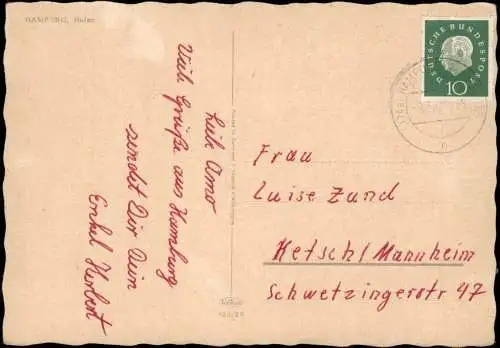 HAMBURG, Hafen
Liebe Omo
Viele Grüße aus Hamburg
sendet Dir Dein
Enkel Herbert
DEUTSCHE BUNDESPOST
10
Frau
Luise Zund
Ketsch/Mannheim
Schwetzingerstr 47